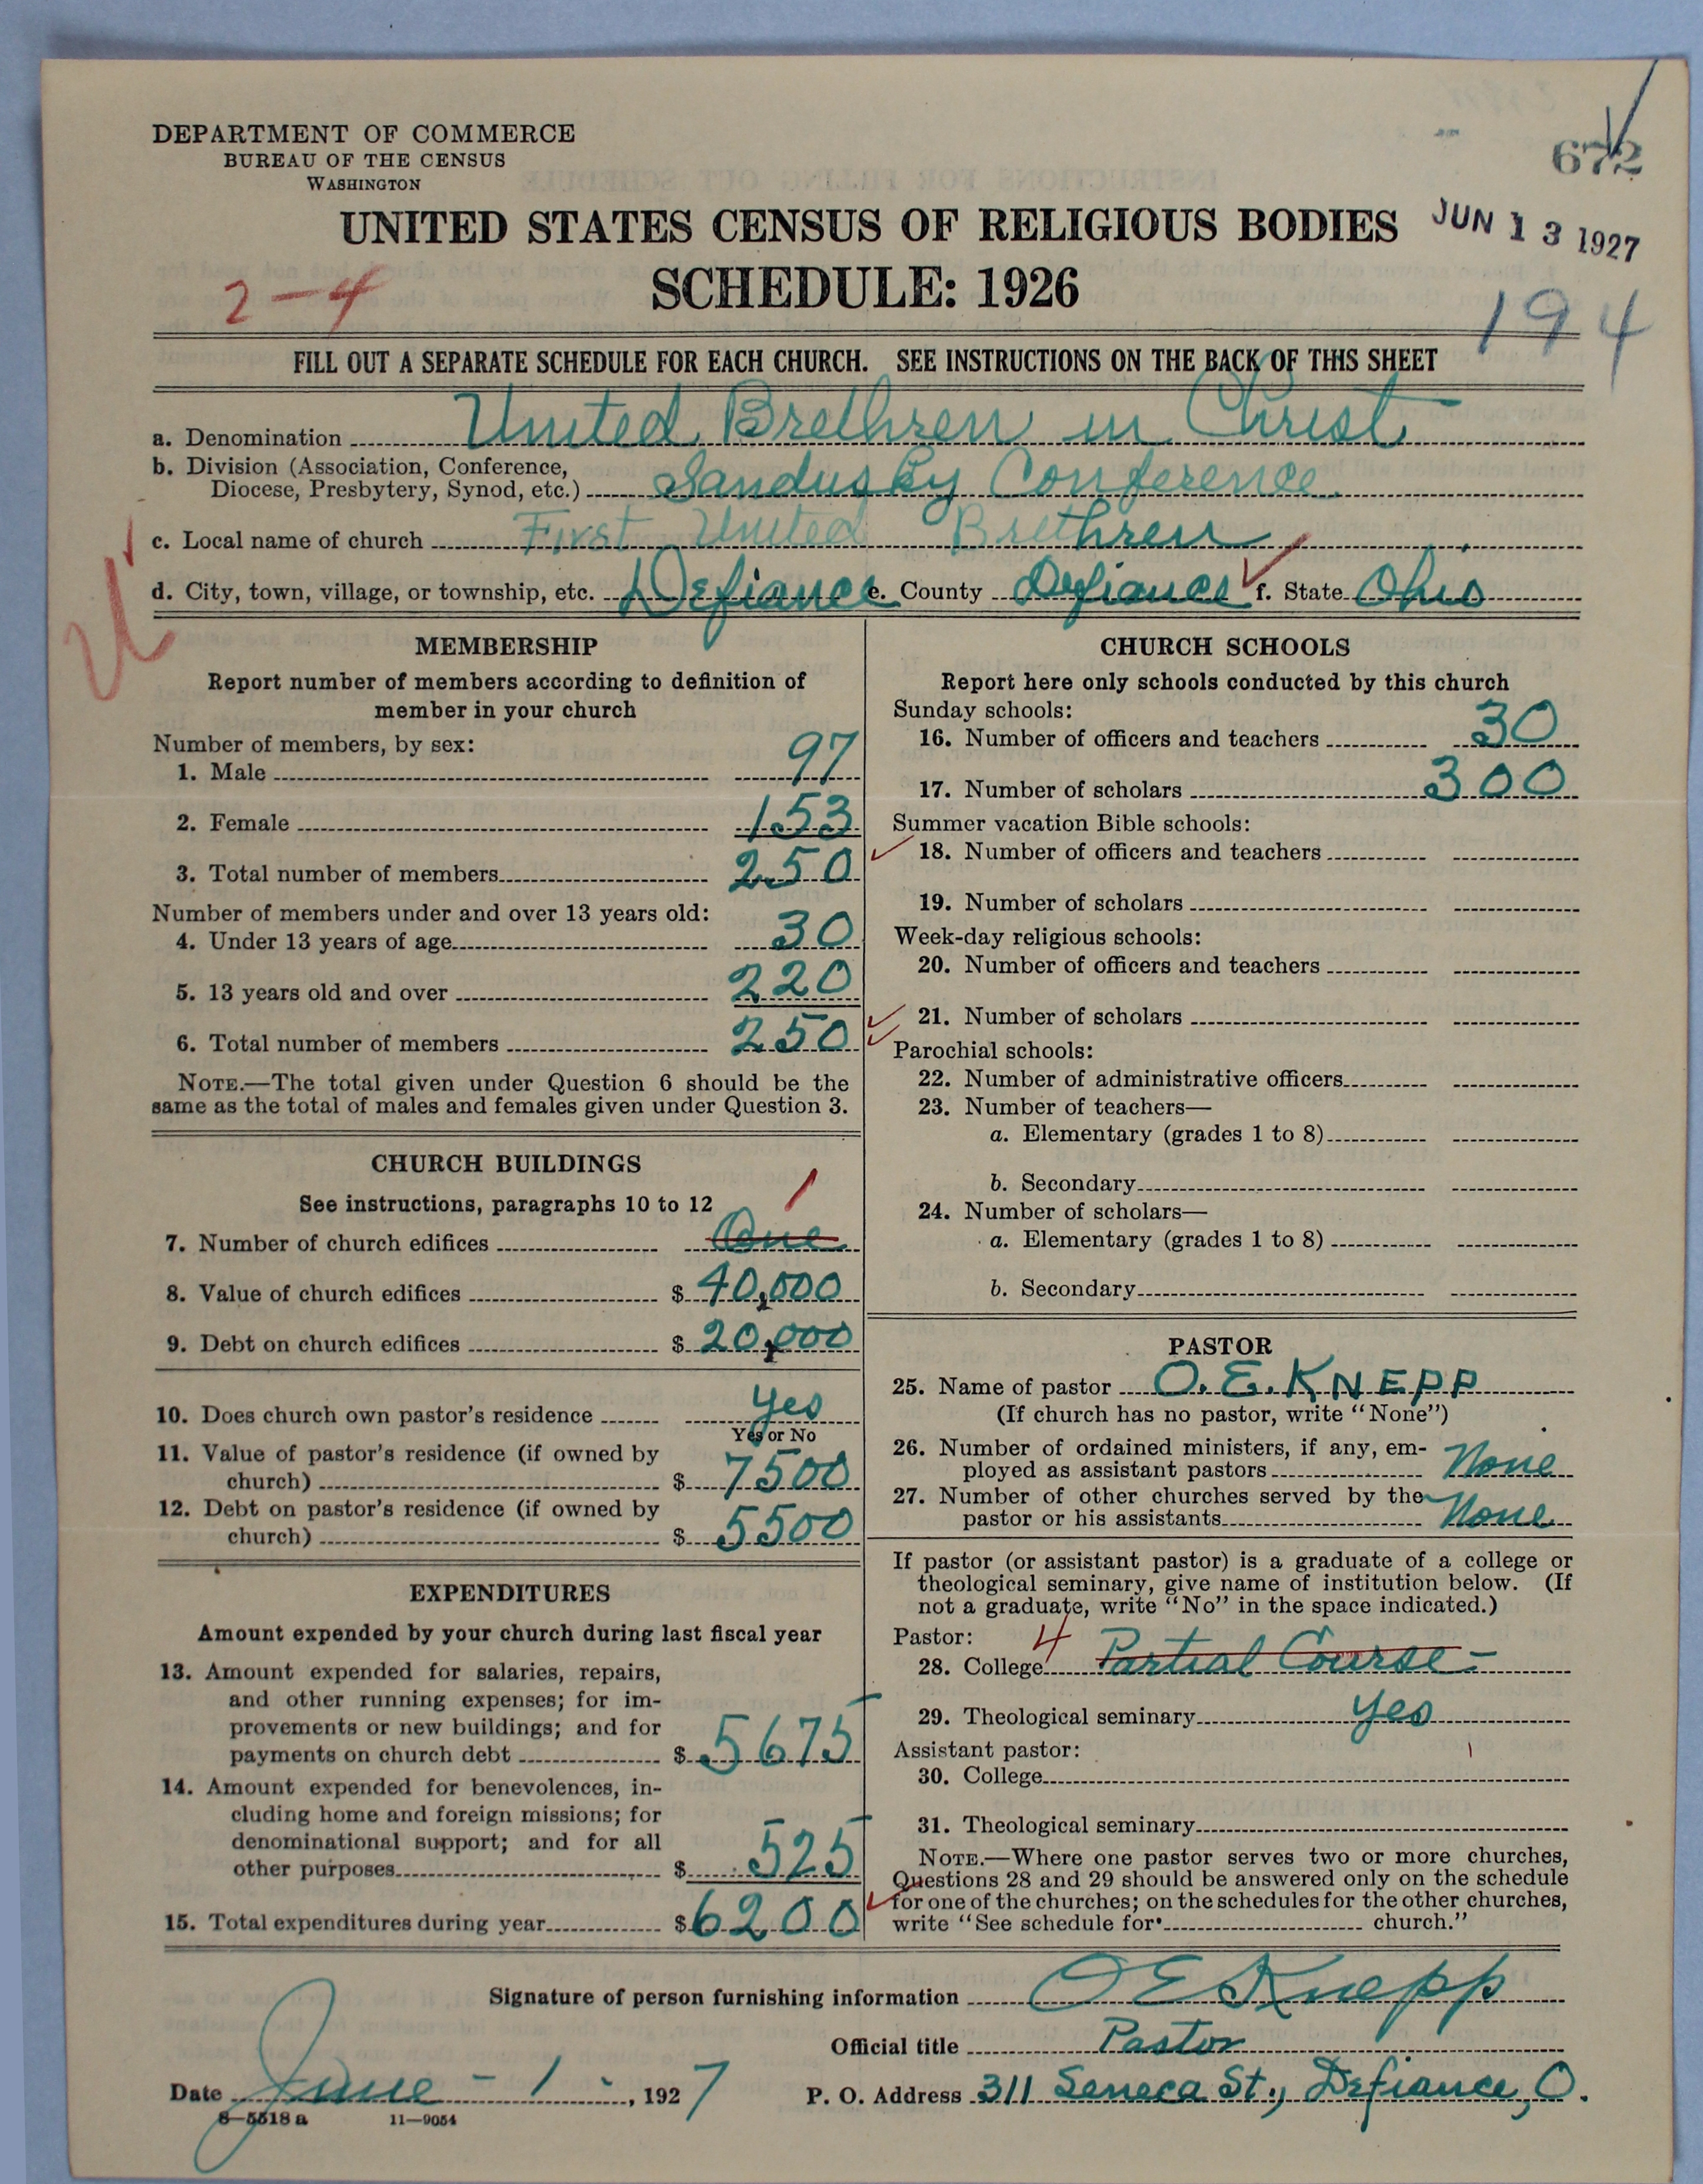 DEPARTMENT OF COMMERCE
BUREAU OF THE CENSUS
WASHINGTON
672
UNITED STATES CENSUS OF RELIGIOUS BODIES
JUN 13 1927
SCHEDULE: 1926
2-4
194
FILL OUT A SEPARATE SCHEDULE FOR EACH CHURCH. SEE INSTRUCTIONS ON THE BACK OF THIS SHEET
a. Denomination United Brethren in Christ
b. Division (Association, Conference,
Diocese, Presbytery, Synod, etc.) Sandusky Conference
c. Local name of church First United Brethren
d. City, town, village, or township, etc. Defiance e. County Defiance f. State Ohio
MEMBERSHIP
Report number of members according to definition of
member in your church
Number of members, by sex:
1. Male 97
2. Female 153
3. Total number of members 250
Number of members under and over 13 years old:
4. Under 13 years of age 30
5. 13 years old and over 220
6. Total number of members 250
NOTE.—The total given under Question 6 should be the
same as the total of males and females given under Question 3.
CHURCH BUILDINGS
See instructions, paragraphs 10 to 12
1
7. Number of church edifices One
8. Value of church edifices $ 40,000
9. Debt on church edifices $ 20,000
10. Does church own pastor's residence yes
Yes or No
11. Value of pastor's residence (if owned by
church) $ 7500
12. Debt on pastor's residence (if owned by
church) $ 5500
EXPENDITURES
Amount expended by your church during last fiscal year
13. Amount expended for salaries, repairs,
and other running expenses; for im-
provements or new buildings; and for
payments on church debt $ 5675
14. Amount expended for benevolences, in-
cluding home and foreign missions; for
denominational support; and for all
other purposes $ 525
15. Total expenditures during year $ 6200
CHURCH SCHOOLS
Report here only schools conducted by this church
Sunday schools:
16. Number of officers and teachers 30
17. Number of scholars 300
Summer vacation Bible schools:
18. Number of officers and teachers
19. Number of scholars
Week-day religious schools:
20. Number of officers and teachers
21. Number of scholars
Parochial schools:
22. Number of administrative officers
23. Number of teachers—
a. Elementary (grades 1 to 8)
b. Secondary
24. Number of scholars—
a. Elementary (grades 1 to 8)
b. Secondary
PASTOR
25. Name of pastor O. E. KNEPP
(If church has no pastor, write "None")
26. Number of ordained ministers, if any, em-
ployed as assistant pastors None
27. Number of other churches served by the
pastor or his assistants None
If pastor (or assistant pastor) is a graduate of a college or
theological seminary, give name of institution below. (If
not a graduate, write "No" in the space indicated.)
Pastor: 4
28. College Partial Course -
29. Theological seminary yes
Assistant pastor:
30. College
31. Theological seminary
NOTE.—Where one pastor serves two or more churches,
Questions 28 and 29 should be answered only on the schedule
for one of the churches; on the schedules for the other churches,
write "See schedule for church."
Signature of person furnishing information O E Knepp
Official title Pastor
Date June - 1 -, 1927 P. O. Address 311 Seneca St., Defiance, O.
8—5518 a 11—9054